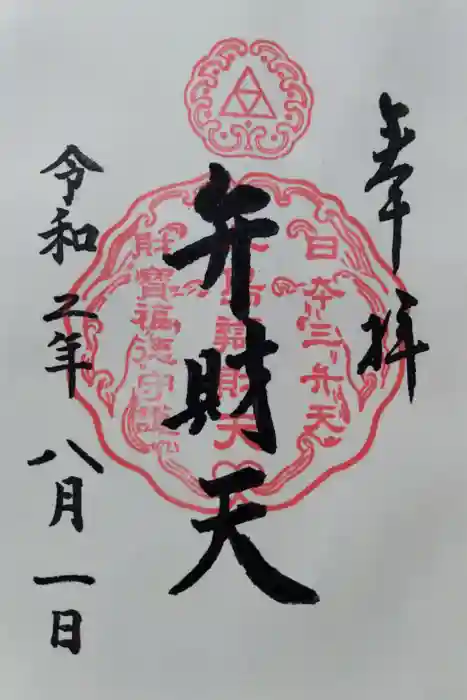 奉拝
日本三弁天
弁財天
財寶福徳守護
令和二年八月一日